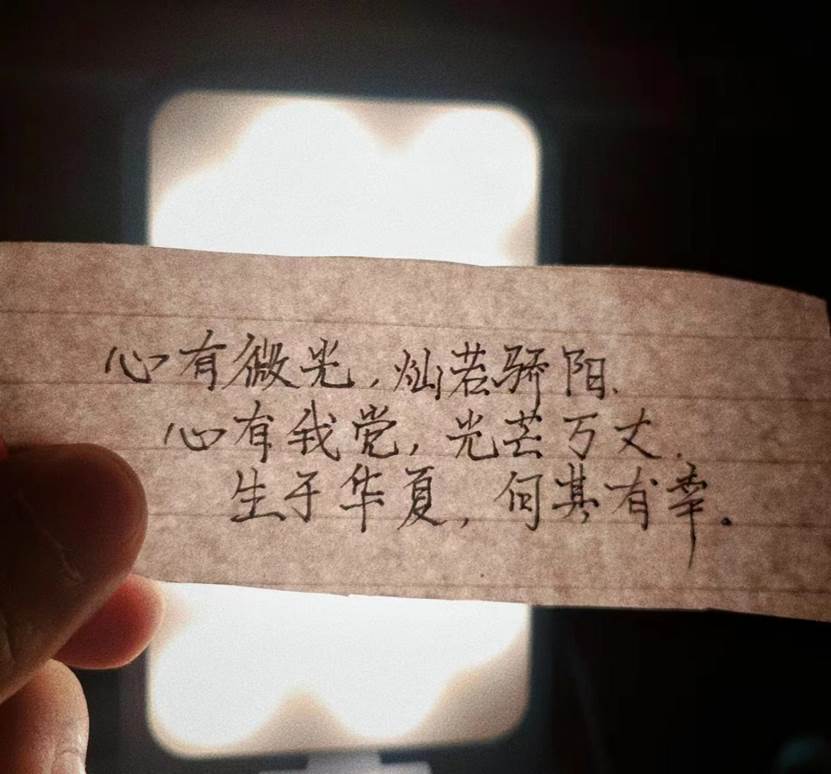 心有微光,灿若骄阳.
心有我党,光芒万丈.
生于华夏,何其有幸。